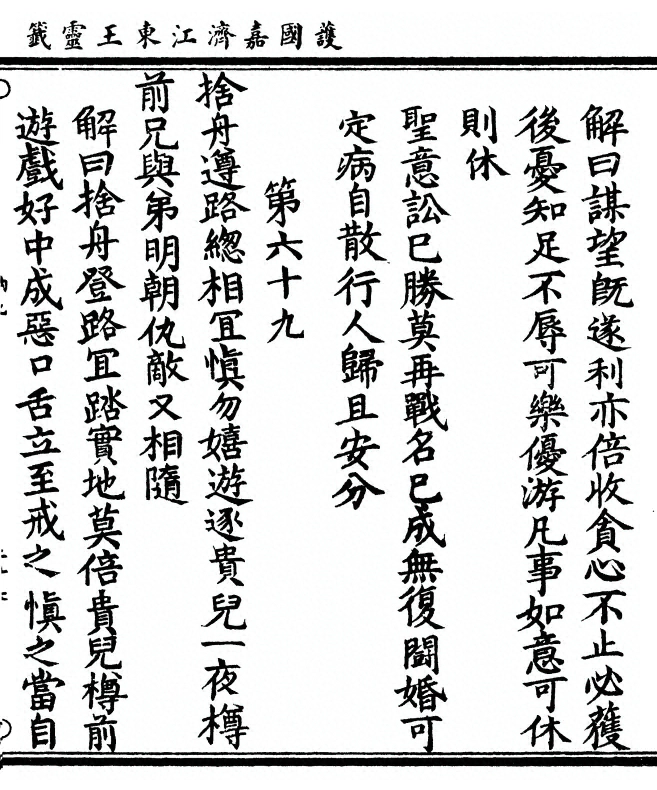 護國嘉濟江東王靈籤
解曰謀望旣遂利亦倍收貪心不止必獲
後憂知足不辱可樂優游凡事如意可休
則休
聖意訟巳勝莫再戰名巳成無復鬪婚可
定病自散行人歸且安分
第六十九
捨舟遵路緫相冝慎勿嬉遊逐貴兒一夜樽
前兄與弟明朝仇敵又相隨
解曰捨舟登路冝踏實地莫倍貴兒樽前
遊戲好中成惡口舌立至戒之慎之當自